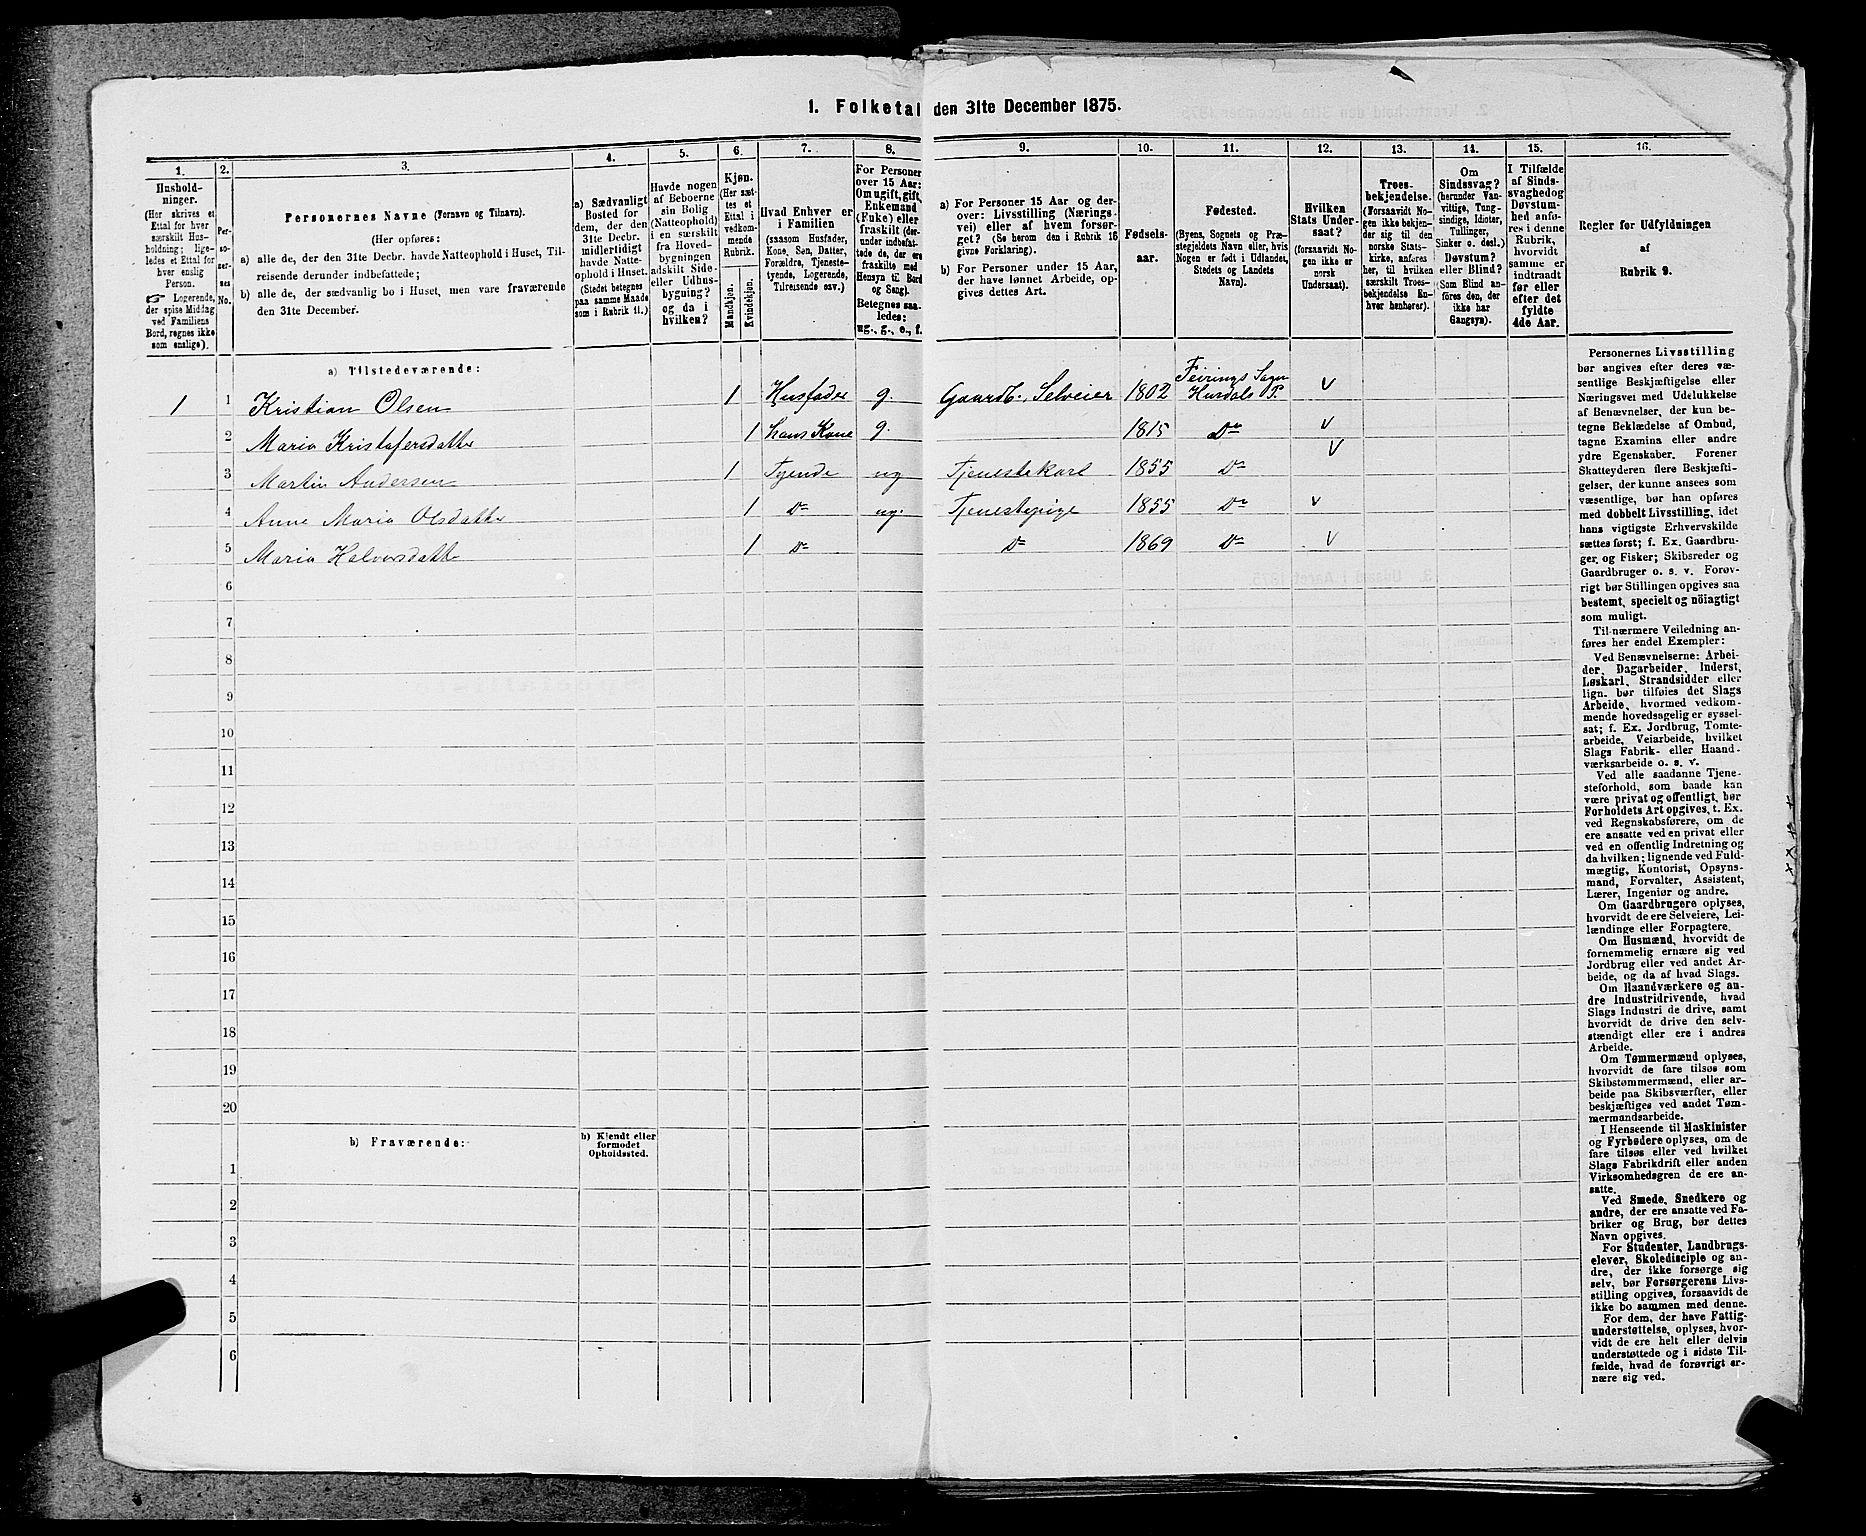 1. Folketal den 31te December 1875.
1.
2.
3.
4.
5.
6.
7.
8.
9.
10.
11.
12.
13.
14.
15.
16.
Hushold-
ninger.
(Her skrives et
Ettal for hver
særskilt Hus-
holdning; lige-
ledes et Ettal for
hver enslig
Person.
☞ Logerende,
der spise Middag
ved Familiens
Bord, regnes ikke
som enslige).
Per-
so-
ner-
nes
No.
Personernes Navne (Fornavn og Tilnavn).
(Her opføres:
a) alle de, der den 31te Decbr. havde Natteophold i Huset, Til-
reisende derunder indbefattede;
b) alle de, der sædvanlig bo i Huset, men vare fraværende
den 31te December.
a) Sædvanligt
Bosted for
dem, der den
31te Decbr.
midlertidigt
havde Natte-
ophold i Huset.
(Stedet betegnes
paa samme Maade
som i Rubrik 11.)
Havde nogen
af Beboerne
sin Bolig
(Natteophold)
i en særskilt
fra Hoved-
bygningen
adskilt Side-
eller Udhus-
bygning?
og da i
hvilken?
Kjøn.
(Her sæt-
tes et
Ettal i
vedkom-
mende
Rubrik.
Mandkjøn.
Kvindekjøn.
Hvad Enhver er
i Familien
(saasom Husfader,
Kone, Søn, Datter,
Forældre, Tjeneste-
tyende, Logerende,
Tilreisende osv.)
For Personer
over 15 Aar:
Om ugift, gift,
Enkemand
(Enke) eller
fraskilt (der-
under indbefat-
tede de, der ere
fraskilte med
Hensyn til Bord
og Seng).
Betegnes saa-
ledes:
ug., g., e., f.
a) For Personer 15 Aar og der-
over: Livsstilling (Nærings-
vei) eller af hvem forsør-
get? (Se herom den i Rubrik 16
givne Forklaring).
b) For Personer under 15 Aar,
der have lønnet Arbeide, op-
gives dettes Art.
Fødsels-
aar.
Fødested.
(Byens, Sognets og Præ-
stegjeldets Navn eller, hvis
Nogen er født i Udlandet,
Stedets og Landets
Navn).
Hvilken
Stats Under-
saat?
(forsaavidt No-
gen ikke er
norsk
Undersaat).
Troes-
bekjendelse.
(Forsaavidt No-
gen ikke bekjen-
der sig til den
norske Stats-
kirke, anføres
her, til hvilken
særskilt Troes-
bekjendelse En-
hver henhører).
Om
Sindssvag?
(herunder Van-
vittige, Tung-
sindige, Idioter,
Tullinger,
Sinker o. desl.)
Døvstum?
eller Blind?
(Som Blind an-
føres den, der
ikke har
Gangsyn).
I Tilfælde
af Sinds-
svaghed og
Døvstum-
hed anfø-
res i denne
Rubrik,
hvorvidt
samme er
indtraadt
før eller
efter det
fyldte
4de Aar.
Regler for Udfyldningen
af
Rubrik 9.
a) Tilstedeværende:
1 1 Kristian Olsen 1 Husfader g. Gaardb. Selveier 1802 Feirings Sogn Hurdals P. V
2 Maria Kristofersdatter 1 hans Kone g. 1815 Do V
3 Martin Andersen 1 Tyende ug Tjenestekarl 1855 Do V
4 Anne Maria Olsdatter 1 Do ug. Tjenestepige 1855 Do V
5 Maria Halvorsdatter 1 Do Do 1869 Do V
6
7
8
9
10
11
12
13
14
15
16
17
18
19
20
b) Fraværende:
b) Kjendt eller
formodet
Opholdssted.
1
2
3
4
5
6
Personernes Livsstilling
bør angives efter deres væ-
sentlige Beskjæftigelse eller
Næringsvei med Udelukkelse
af Benævnelser, der kun be-
tegne Beklædelse af Ombud,
tagne Examina eller andre
ydre Egenskaber. Forener
Skatteyderen flere Beskjæfti-
gelser, der kunne ansees som
væsentlige, bør han opføres
med dobbelt Livsstilling, idet
hans vigtigste Erhvervskilde
sættes først; f. Ex. Gaardbru-
ger og Fisker; Skibsreder og
Gaardbruger o. s. v. Forøv-
rigt bør Stillingen opgives saa
bestemt, specielt og nöiagtigt
som muligt.
Til nærmere Veiledning an-
føres her endel Exempler:
Ved Benævnelserne: Arbei-
der, Dagarbeider, Inderst,
Løskarl, Strandsidder eller
lign. bør tilføies det Slags
Arbeide, hvormed vedkom-
mende hovedsagelig er syssel-
sat; f. Ex. Jordbrug, Tomte-
arbeide, Veiarbeide, hvilket
Slags Fabrik- eller Haand-
værksarbeide o. s. v.
Ved alle saadanne Tjene-
steforhold, som baade kan
være privat og offentligt, bør
Forholdets Art opgives, t. Ex.
ved Regnskabsførere, om de
ere ansatte ved en privat eller
ved en offentlig Indretning og
da hvilken; lignende ved Fuld-
mægtig, Kontorist, Opsyns-
mand, Forvalter, Assistent,
Lærer, Ingeniør og andre.
Om Gaardbrugere oplyses,
hvorvidt de ere Selveiere, Lei-
lændinge eller Forpagtere.
Om Husmænd, hvorvidt de
fornemmelig ernære sig ved
Jordbrug eller ved andet Ar-
beide, og da af hvad Slags.
Om Haandværkere og an-
dre Industridrivende, hvad
Slags Industri de drive, samt
hvorvidt de drive den selv-
stændigt eller ere i andres
Arbeide.
Om Tømmermænd oplyses,
hvorvidt de fare tilsøs som
Skibstømmermænd, eller ar-
beide paa Skibsværfter, eller
beskjæftiges ved andet Tøm-
mermandsarbeide.
I Henseende til Maskinister
og Fyrbødere oplyses, om de
fare tilsøs eller ved hvilket
Slags Fabrikdrift eller anden
Virksomhedsgren de ere an-
satte.
Ved Smede, Snedkere og
andre, der ere ansatte ved Fa-
briker og Brug, bør dettes
Navn opgives.
For Studenter, Landbrugs-
elever, Skoledisciple og an-
dre, der ikke forsørge sig
selv, bør Forsørgerens Livs-
stilling opgives, forsaavidt de
ikke bo sammen med denne.
For dem, der have Fattig-
understøttelse, oplyses, hvor-
vidt de ere helt eller delvis
understøttede og i sidste Til-
fælde, hvad de forøvrigt er-
nære sig ved.